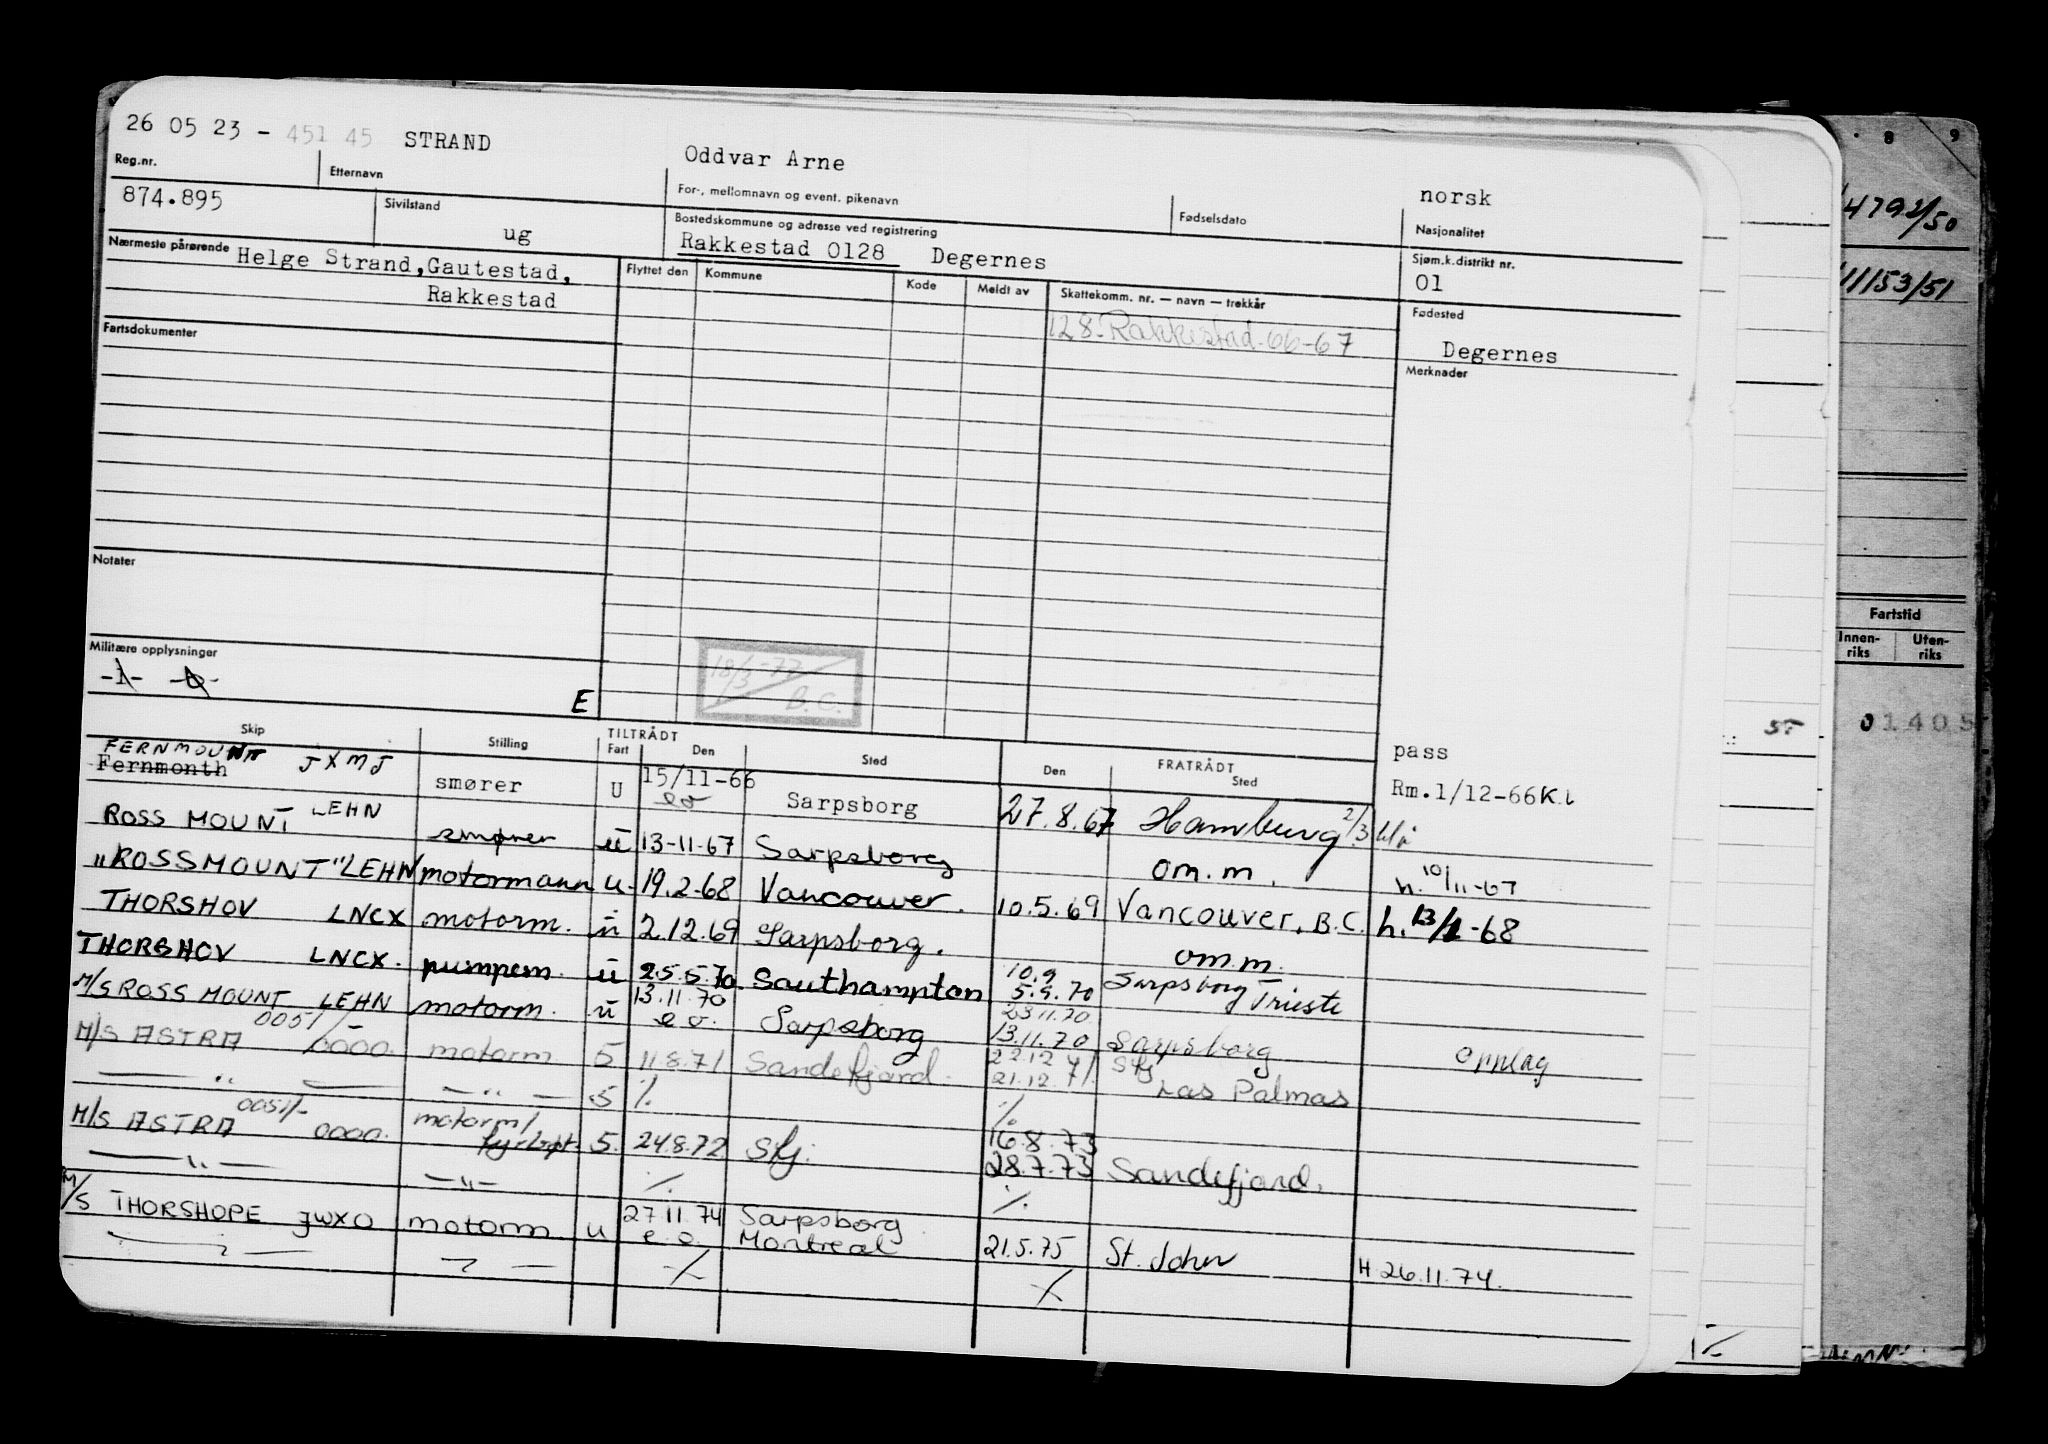 26 05 23 - 451 45 STRAND Oddvar Arne norsk
Reg.nr. Etternavn For-, mellomnavn og event. pikenavn Fødselsdato Nasjonalitet
874.895 Sivilstand ug Bostedskommune og adresse ved registrering Sjøm.k.distrikt nr.
Rakkestad 0128 Degernes 01
Nærmeste pårørende Helge Strand, Gautestad,
Rakkestad
Flyttet den Kommune Kode Meldt av Skattekomm. nr. — navn — trekkår Fødested
128-Rakkestad-66-67 Degernes
Fartsdokumenter Merknader
Notater
Militære opplysninger
E
18/3-77
B.C.
Skip Stilling TILTRÅDT FRATRÅDT
Fart Den Sted Den Sted
pass
FERNMOUNT JXMJ
Fernmonth smører U 15/11-66 Sarpsborg 27.8.67 Hamburg 2/3 Rm.1/12-66K.
eo
ROSS MOUNT LEHN smører u 13-11-67 Sarpsborg om.m. h. 10/11-67
"ROSSMOUNT" LEHN motormann u 19.2-68 Vancouver. 10.5.69 Vancouver, B.C. h. 13/2-68
THORSHOV LNCX motorm. u 2.12.69 Sarpsborg. om.m.
THORSHOV LNCX. pumpem. u 25.5.70 Southampton 10.9 5.9.70 Sarpsborg Trieste
M/S ROSS MOUNT LEHN motorm. u 13.11.70 e.o. Sarpsborg 23.11.70 13.11.70 Sarpsborg
M/S ASTRA 0051/- 0000. motorm 5 11.8.71 Sandefjord. 22.12.71 21.12.71. Sfj Las Palmas Opplag
— " — — " — 5 % %
M/S ASTRA 0051/- 0000. motorm/ fyrbøt. 5. 24.8.72 Sfj. 16.8.73 28.7.73 Sandefjord.
— " — — " — % %
M/S THORSHOPE JWXO motorm u 27.11.74 e.o. Sarpsborg Montreal 21.5.75 St. John H 26.11.74.
8 9
4792/50
11153/51
Fartstid
Innen-riks Uten-riks
01405